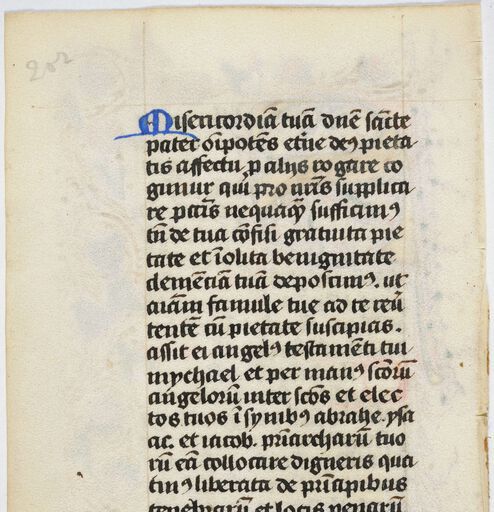 202
Misericordiā tuā dnē sācte
pater oīpotēs et̄ne deꝰ pieta
tis affectu p alijs rogare co
gimur qui pro nrīs supplica
re pctīs nequaqͣ sufficimꝰ
tn̄ de tua cōfisi gratuita pie
tate et īsolita benignitate
clemēciā tuā deposcimꝰ. ut
aīam famule tue ad te reū
tentē cū pietate suscipias.
assit ei angelꝰ testamēti tui
mychael et per manꝰ scōrū
angelorū inter scōs et elec
tos tuos ī synibꝰ abrahe. ysa
ac. et iacob. prīarcharū tuo
rū eā collocare digneris qua
tinꝰ liberata de prīcipibus
tenebrarū et locis penarū